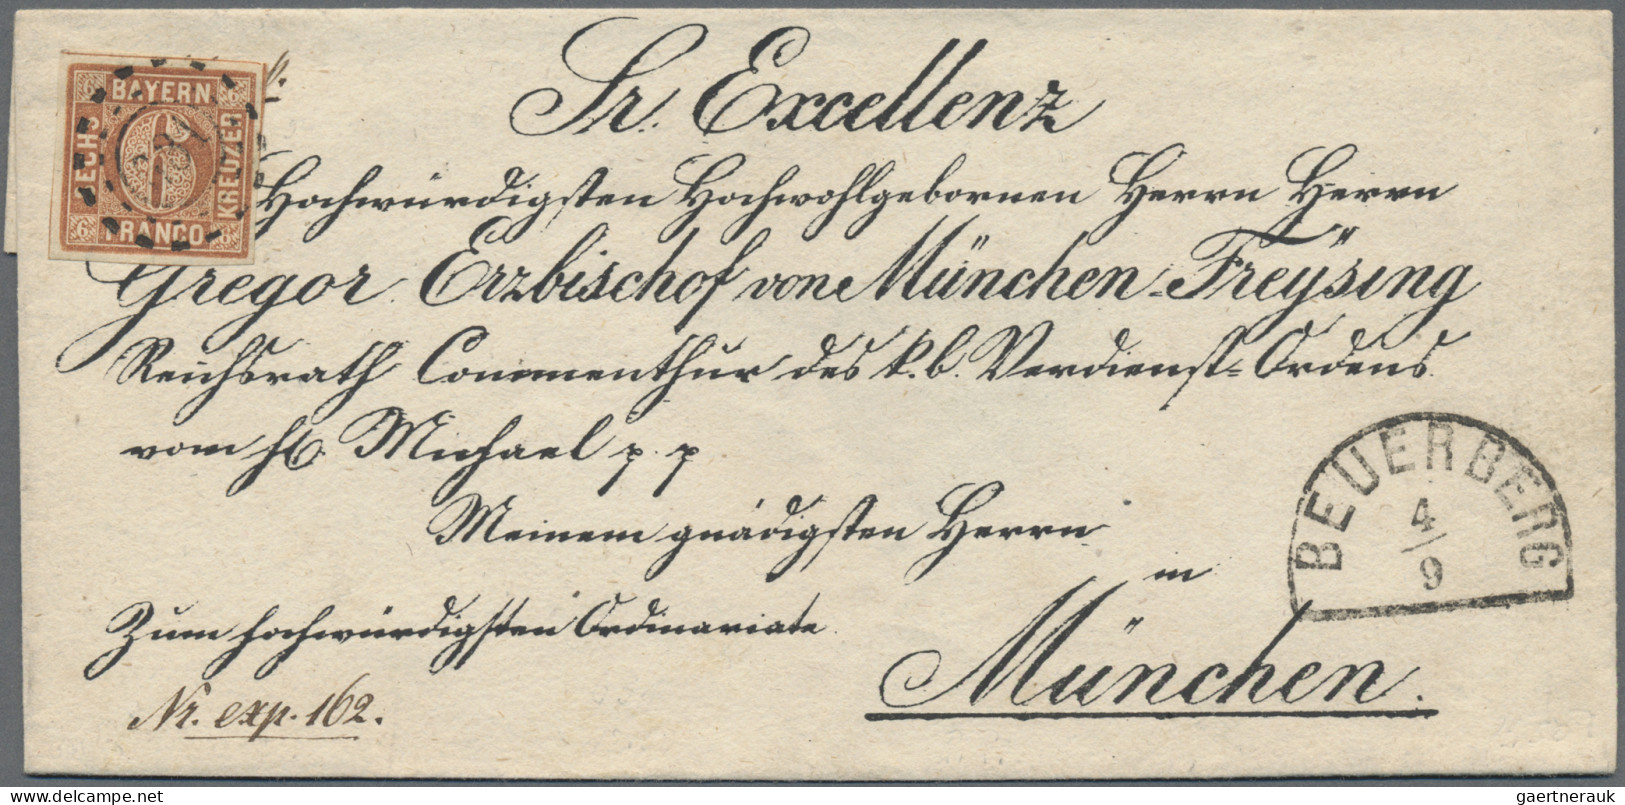 6 BAYERN 6
SECHS
KREUZER
6 FRANCO 6
Sr. Excellenz
Hochwürdigsten Hochwohlgebornen Herrn Herrn
Gregor Erzbischof von München-Freÿsing
Reichsrath Commenthur des k. b. Verdienst-Ordens
vom hl. Michael p. p
Meinem gnädigsten Herrn
in
München.
Zum hochwürdigsten Ordinariate
Nr. exp. 162.
BEUERBERG
4/9
www.delcampe.net
gaertnerauk